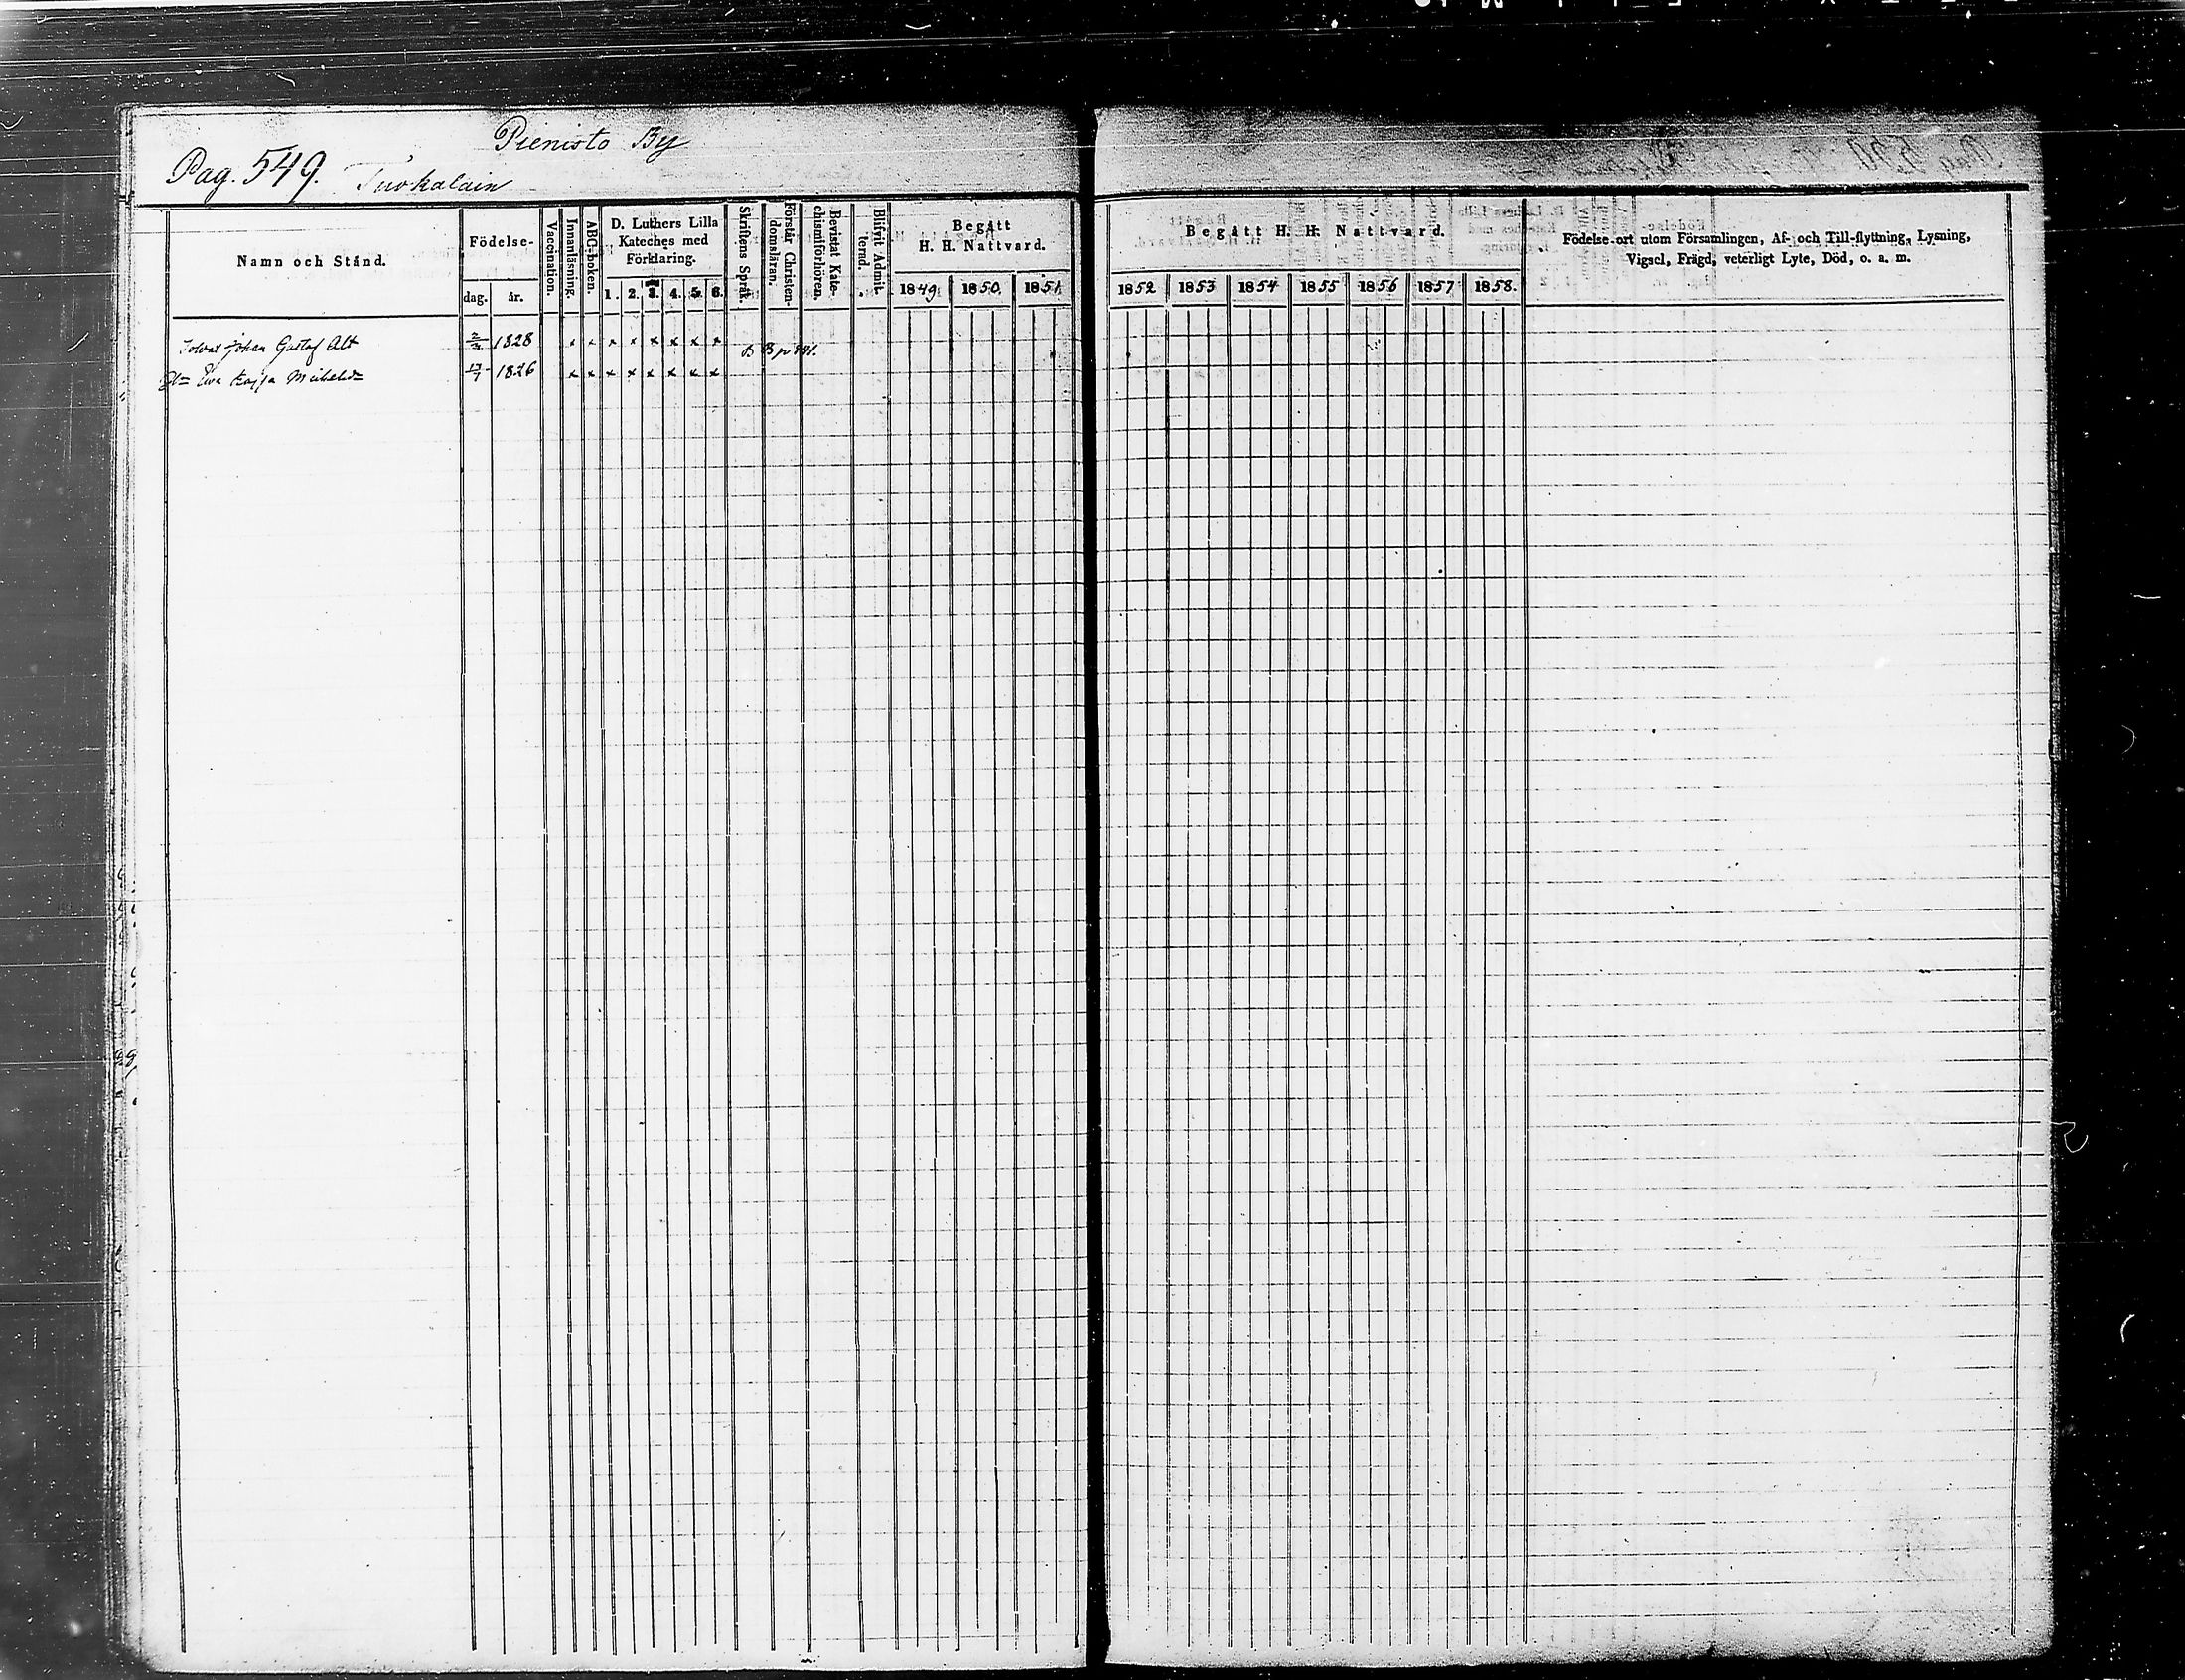 Pienisto By
Pag. 549.
Namn och Stånd.
Födelse-
dag. år.
Vaccination.
Innanläsning.
ABC-boken.
D. Luthers Lilla
Kateches med
Förklaring.
1. 2. 3. 4. 5. 6.
Skriftens Språk.
Förstår Christen-
domsläran.
Bevistat Kate-
chismiförhören.
Blifvit Admit-
terad.
Begått
H. H. Nattvard.
1849. 1850. 1851.
Begått H. H. Nattvard.
1852 1853 1854 1855 1856 1857 1858.
Födelse-ort utom Församlingen, Af- och Till-flyttning, Lysning,
Vigsel, Frägd, veterligt Lyte, Död, o. a. m.
Johan Gustaf 1828 x x x x x x x x
Ewa Kajsa 1826 x x x x x x x x